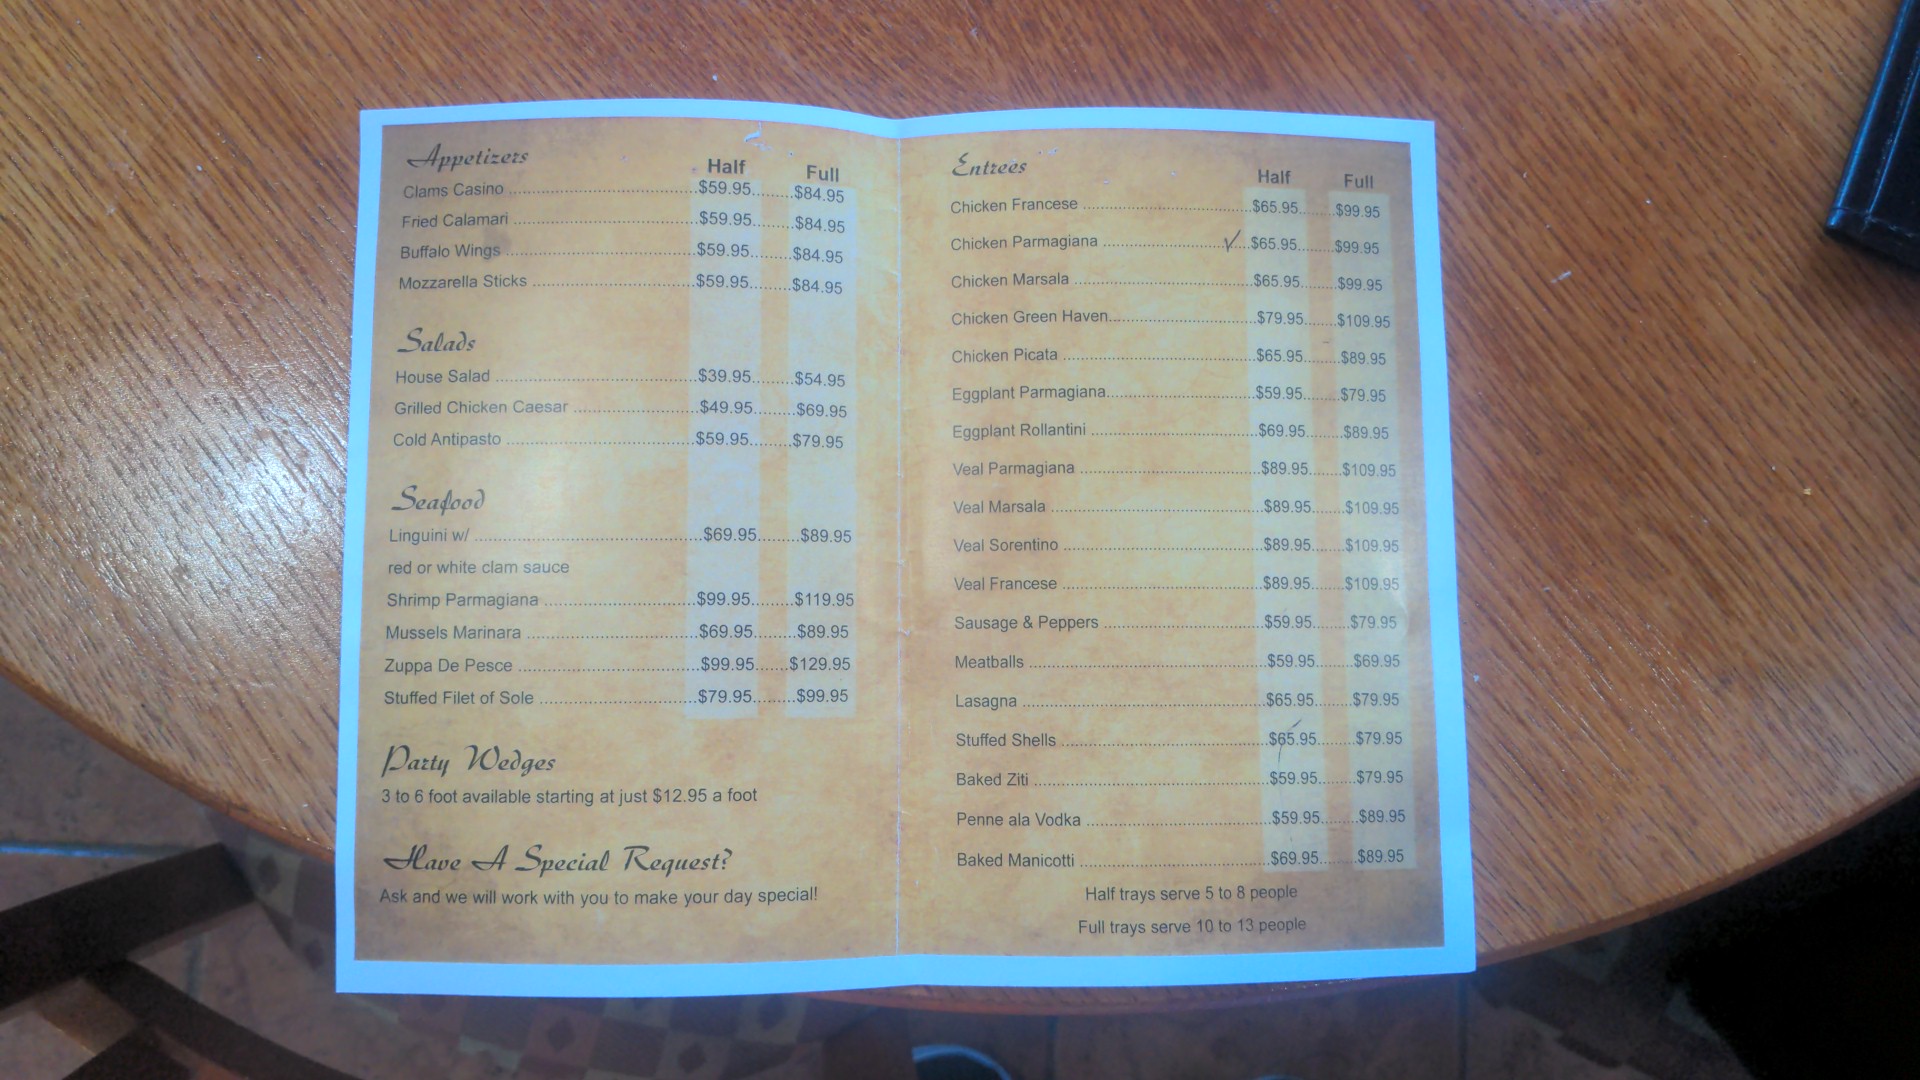 Appetizers Half Full
Clams Casino $59.95 $84.95
Fried Calamari $59.95 $84.95
Buffalo Wings $59.95 $84.95
Mozzarella Sticks $59.95 $84.95
Salads
House Salad $39.95 $54.95
Grilled Chicken Caesar $49.95 $69.95
Cold Antipasto $59.95 $79.95
Seafood
Linguini w/ $69.95 $89.95
red or white clam sauce
Shrimp Parmagiana $99.95 $119.95
Mussels Marinara $69.95 $89.95
Zuppa De Pesce $99.95 $129.95
Stuffed Filet of Sole $79.95 $99.95
Party Wedges
3 to 6 foot available starting at just $12.95 a foot
Have A Special Request?
Ask and we will work with you to make your day special!
Entrees Half Full
Chicken Francese $65.95 $99.95
Chicken Parmagiana $65.95 $99.95
Chicken Marsala $65.95 $99.95
Chicken Green Haven $79.95 $109.95
Chicken Picata $65.95 $89.95
Eggplant Parmagiana $59.95 $79.95
Eggplant Rollantini $69.95 $89.95
Veal Parmagiana $89.95 $109.95
Veal Marsala $89.95 $109.95
Veal Sorentino $89.95 $109.95
Veal Francese $89.95 $109.95
Sausage & Peppers $59.95 $79.95
Meatballs $59.95 $69.95
Lasagna $65.95 $79.95
Stuffed Shells $65.95 $79.95
Baked Ziti $59.95 $79.95
Penne ala Vodka $59.95 $89.95
Baked Manicotti $69.95 $89.95
Half trays serve 5 to 8 people
Full trays serve 10 to 13 people